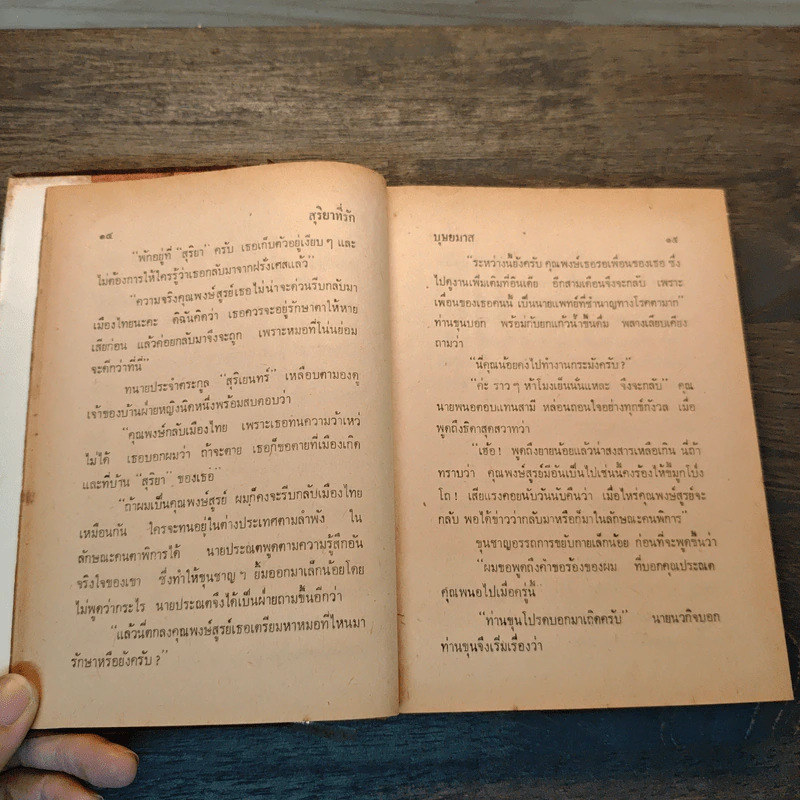 ๑๔ สุริยาที่รัก
"พักอยู่ที่ "สุริยา" ครับ เธอเก็บตัวอยู่เงียบ ๆ และ
ไม่ต้องการให้ใครรู้ว่าเธอกลับมาจากฝรั่งเศสแล้ว"
"ความจริงคุณพงษ์สูรย์เธอไม่น่าจะด่วนรีบกลับมา
เมืองไทยนะคะ ดิฉันคิดว่า เธอควรจะอยู่รักษาตาให้หาย
เสียก่อน แล้วค่อยกลับมาจึงจะถูก เพราะหมอที่โน่นย่อม
จะดีกว่าที่นี่"
ทนายประจำตระกูล "สุริเยนทร์" เหลือบตามองดู
เจ้าของบ้านฝ่ายหญิงนิดหนึ่งพร้อมสบตอบว่า
"คุณพงษ์กลับเมืองไทย เพราะเธอทนความว้าเหว่
ไม่ได้ เธอบอกผมว่า ถ้าจะตาย เธอก็ขอตายที่เมืองเกิด
และที่บ้าน "สุริยา" ของเธอ"
"ถ้าผมเป็นคุณพงษ์สูรย์ ผมก็คงจะรีบกลับเมืองไทย
เหมือนกัน ใครจะทนอยู่ในต่างประเทศตามลำพัง ใน
ลักษณะคนตาพิการได้ นายประณตพูดตามความรู้สึกอัน
จริงใจของเขา ซึ่งทำให้ขุนชาญ ๆ ยิ้มออกมาเล็กน้อยโดย
ไม่พูดว่ากระไร นายประณตจึงได้เป็นฝ่ายถามขึ้นอีกว่า
"แล้วนี่ตกลงคุณพงษ์สูรย์เธอเตรียมหาหมอที่ไหนมา
รักษาหรือยังครับ?"
บุษยมาส ๑๕
"ระหว่างนี้ยังครับ คุณพงษ์เธอรอเพื่อนของเธอ ซึ่ง
ไปดูงานเพิ่มเติมที่อินเดีย อีกสามเดือนจึงจะกลับ เพราะ
เพื่อนของเธอคนนี้ เป็นนายแพทย์ที่ชำนาญทางโรคตามาก"
ท่านขุนบอก พร้อมกับยกแก้วน้ำขึ้นดื่ม พลางเลียบเคียง
ถามว่า
"นี่คุณน้อยคงไปทำงานกระมังครับ?"
"ค่ะ ราว ๆ ห้าโมงเย็นนั่นแหละ จึงจะกลับ" คุณ
นายพนอตอบแทนสามี หล่อนถอนใจอย่างทุกข์กังวล เมื่อ
พูดถึงธิดาสุดสวาทว่า
"เฮ้อ! พูดถึงยายน้อยแล้วน่าสงสารเหลือเกิน นี่ถ้า
ทราบว่า คุณพงษ์สูรย์มีอันเป็นไปเช่นนี้คงร้องไห้ขี้มูกโป่ง
โถ! เสียแรงคอยนับวันนับคืนว่า เมื่อไหร่คุณพงษ์สูรย์จะ
กลับ พอได้ข่าวว่ากลับมาหรือก็มาในลักษณะคนพิการ"
ขุนชาญอรรถการขยับกายเล็กน้อย ก่อนที่จะพูดขึ้นว่า
"ผมขอพูดถึงคำขอร้องของผม ที่บอกคุณประณต
คุณพนอไปเมื่อครู่นี้
"ท่านขุนโปรดบอกมาเถิดครับ" นายนวกิจบอก
ท่านขุนจึงเริ่มเรื่องว่า